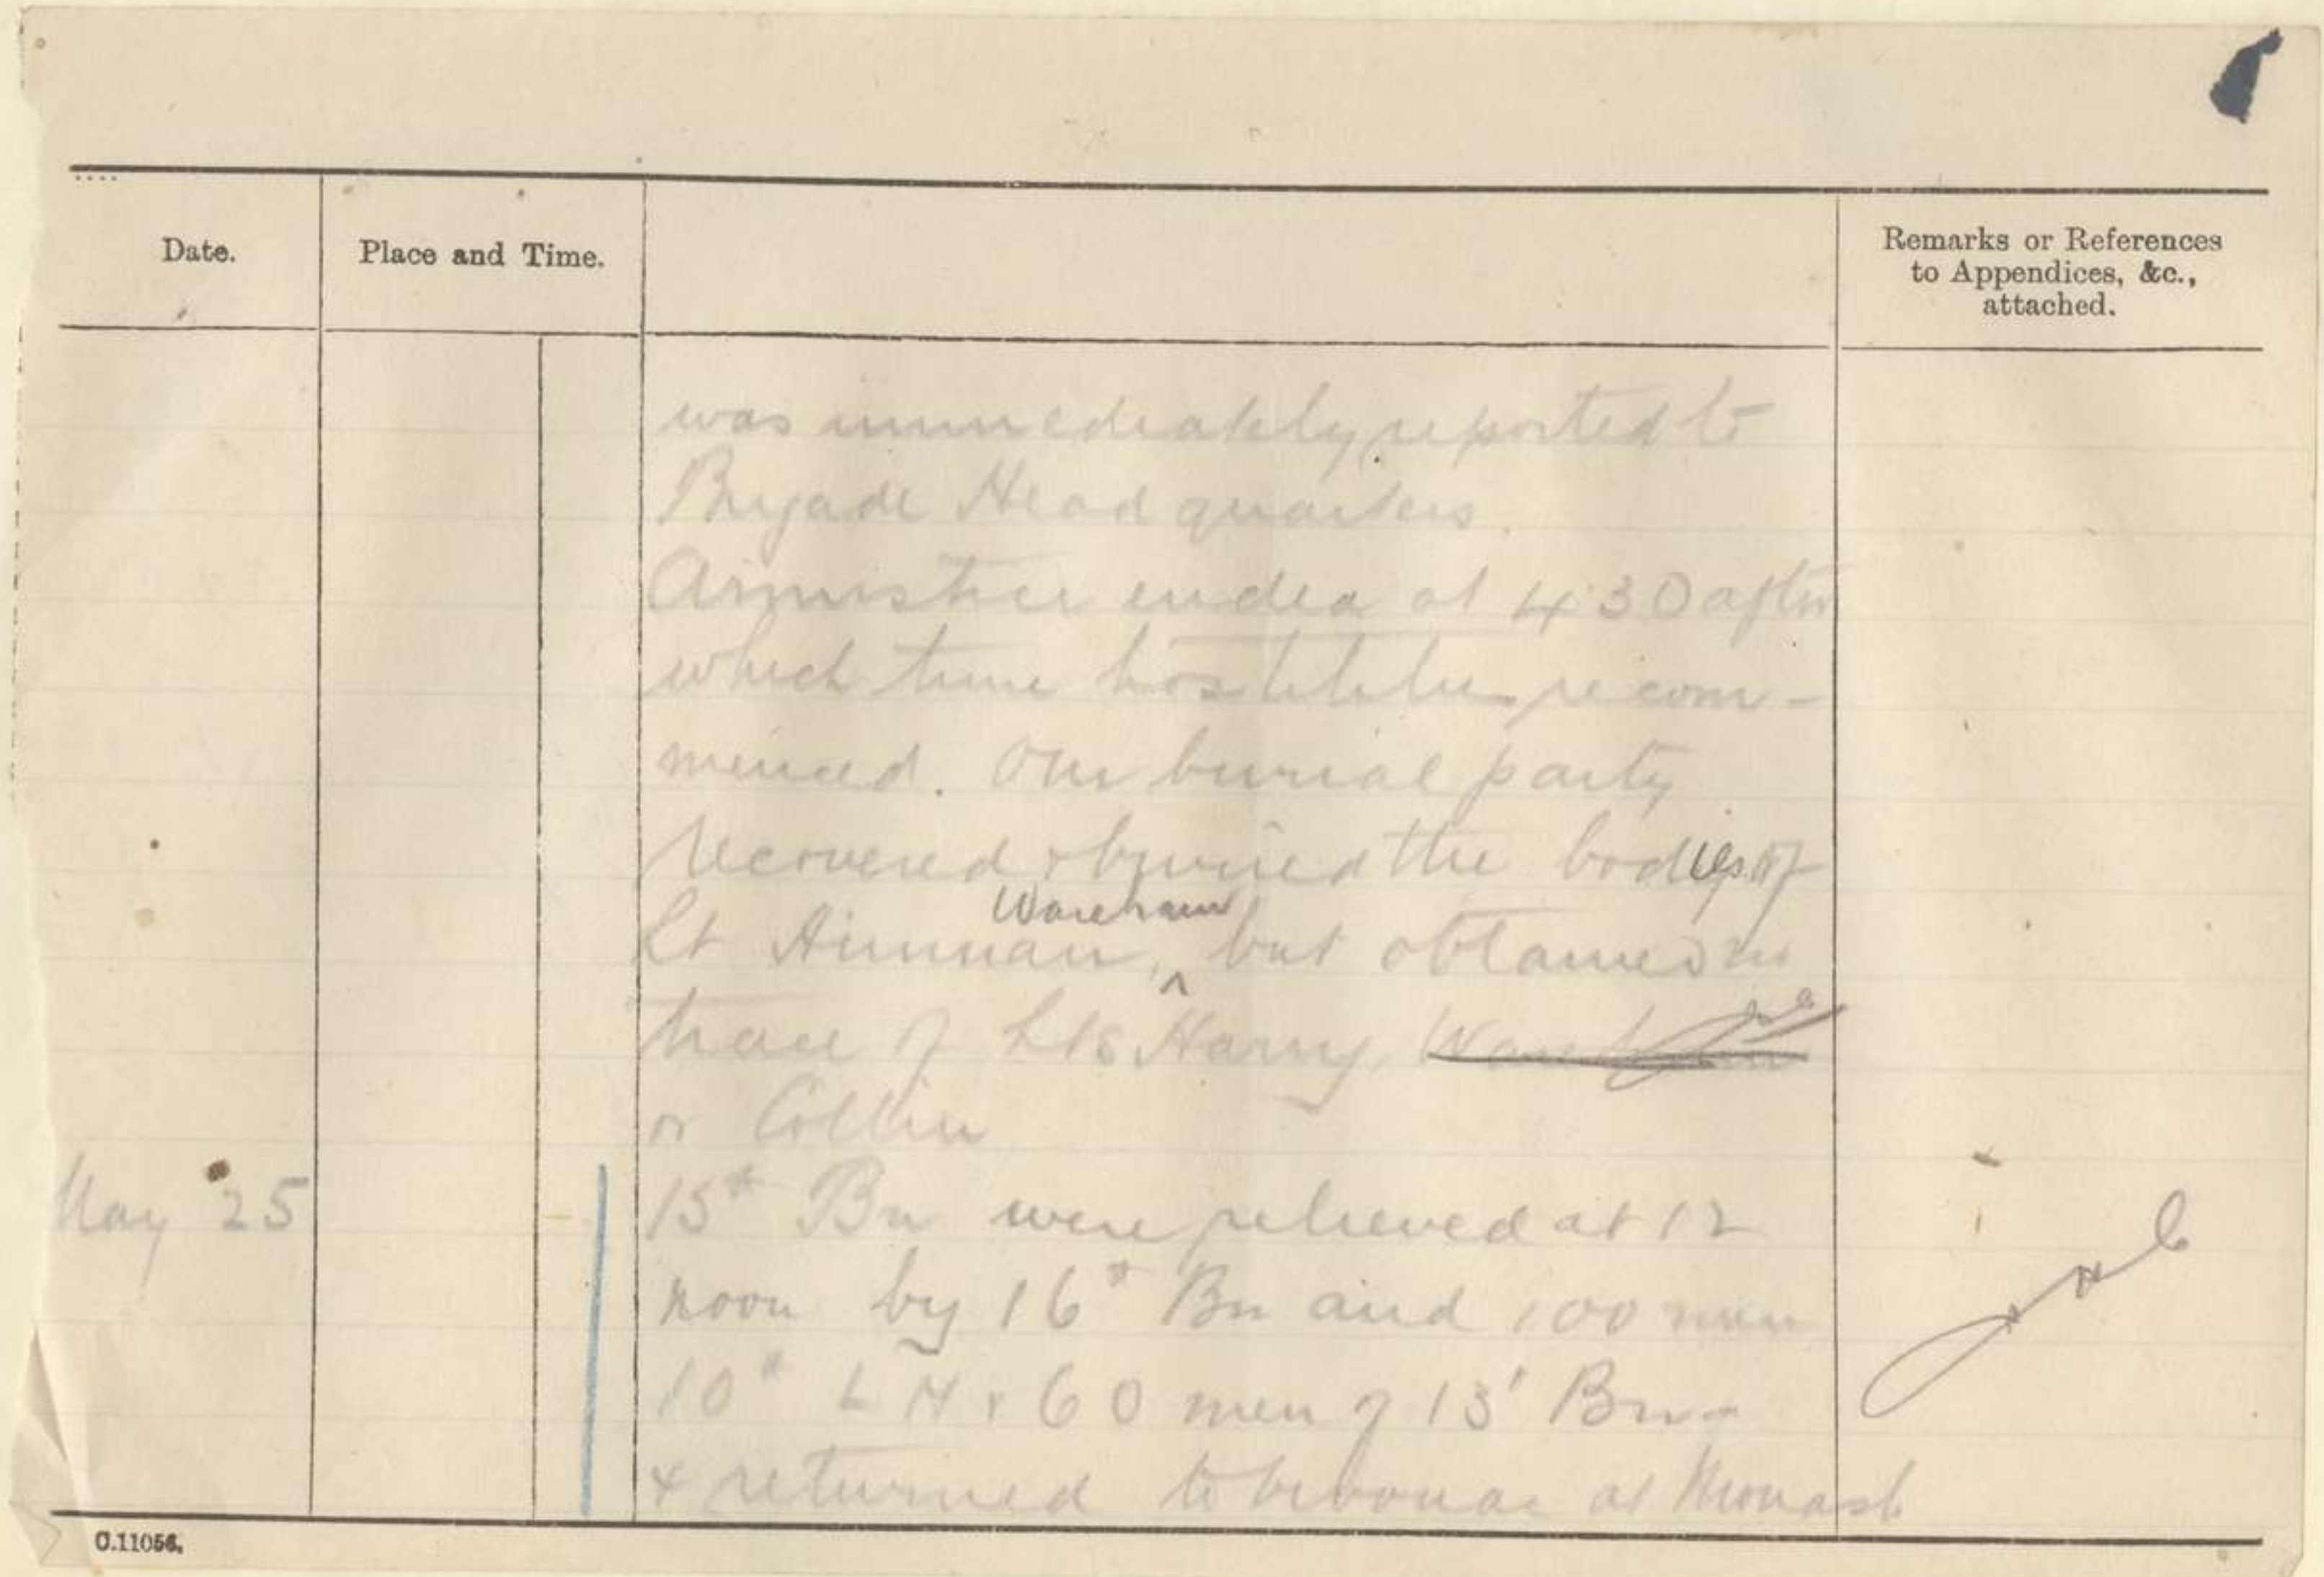 Date.
Place and Time.
Remarks or References
to Appendices, &c.,
attached.
was immediately reported to
Brigade Head quarters.
Armistice ended at 4.30 after
which time hostilities recom-
menced. Our burial party
recovered & buried the bodies of
Wareham
Lt Hinman, ^ but obtained no
trace of Lts Harry, Wareham
or Collin
May 25
15th Bn were relieved at 12
noon by 16th Bn and 100 men
10th L H & 60 men of 13' Bn -
& returned to bivouac at Monash
C.11056.